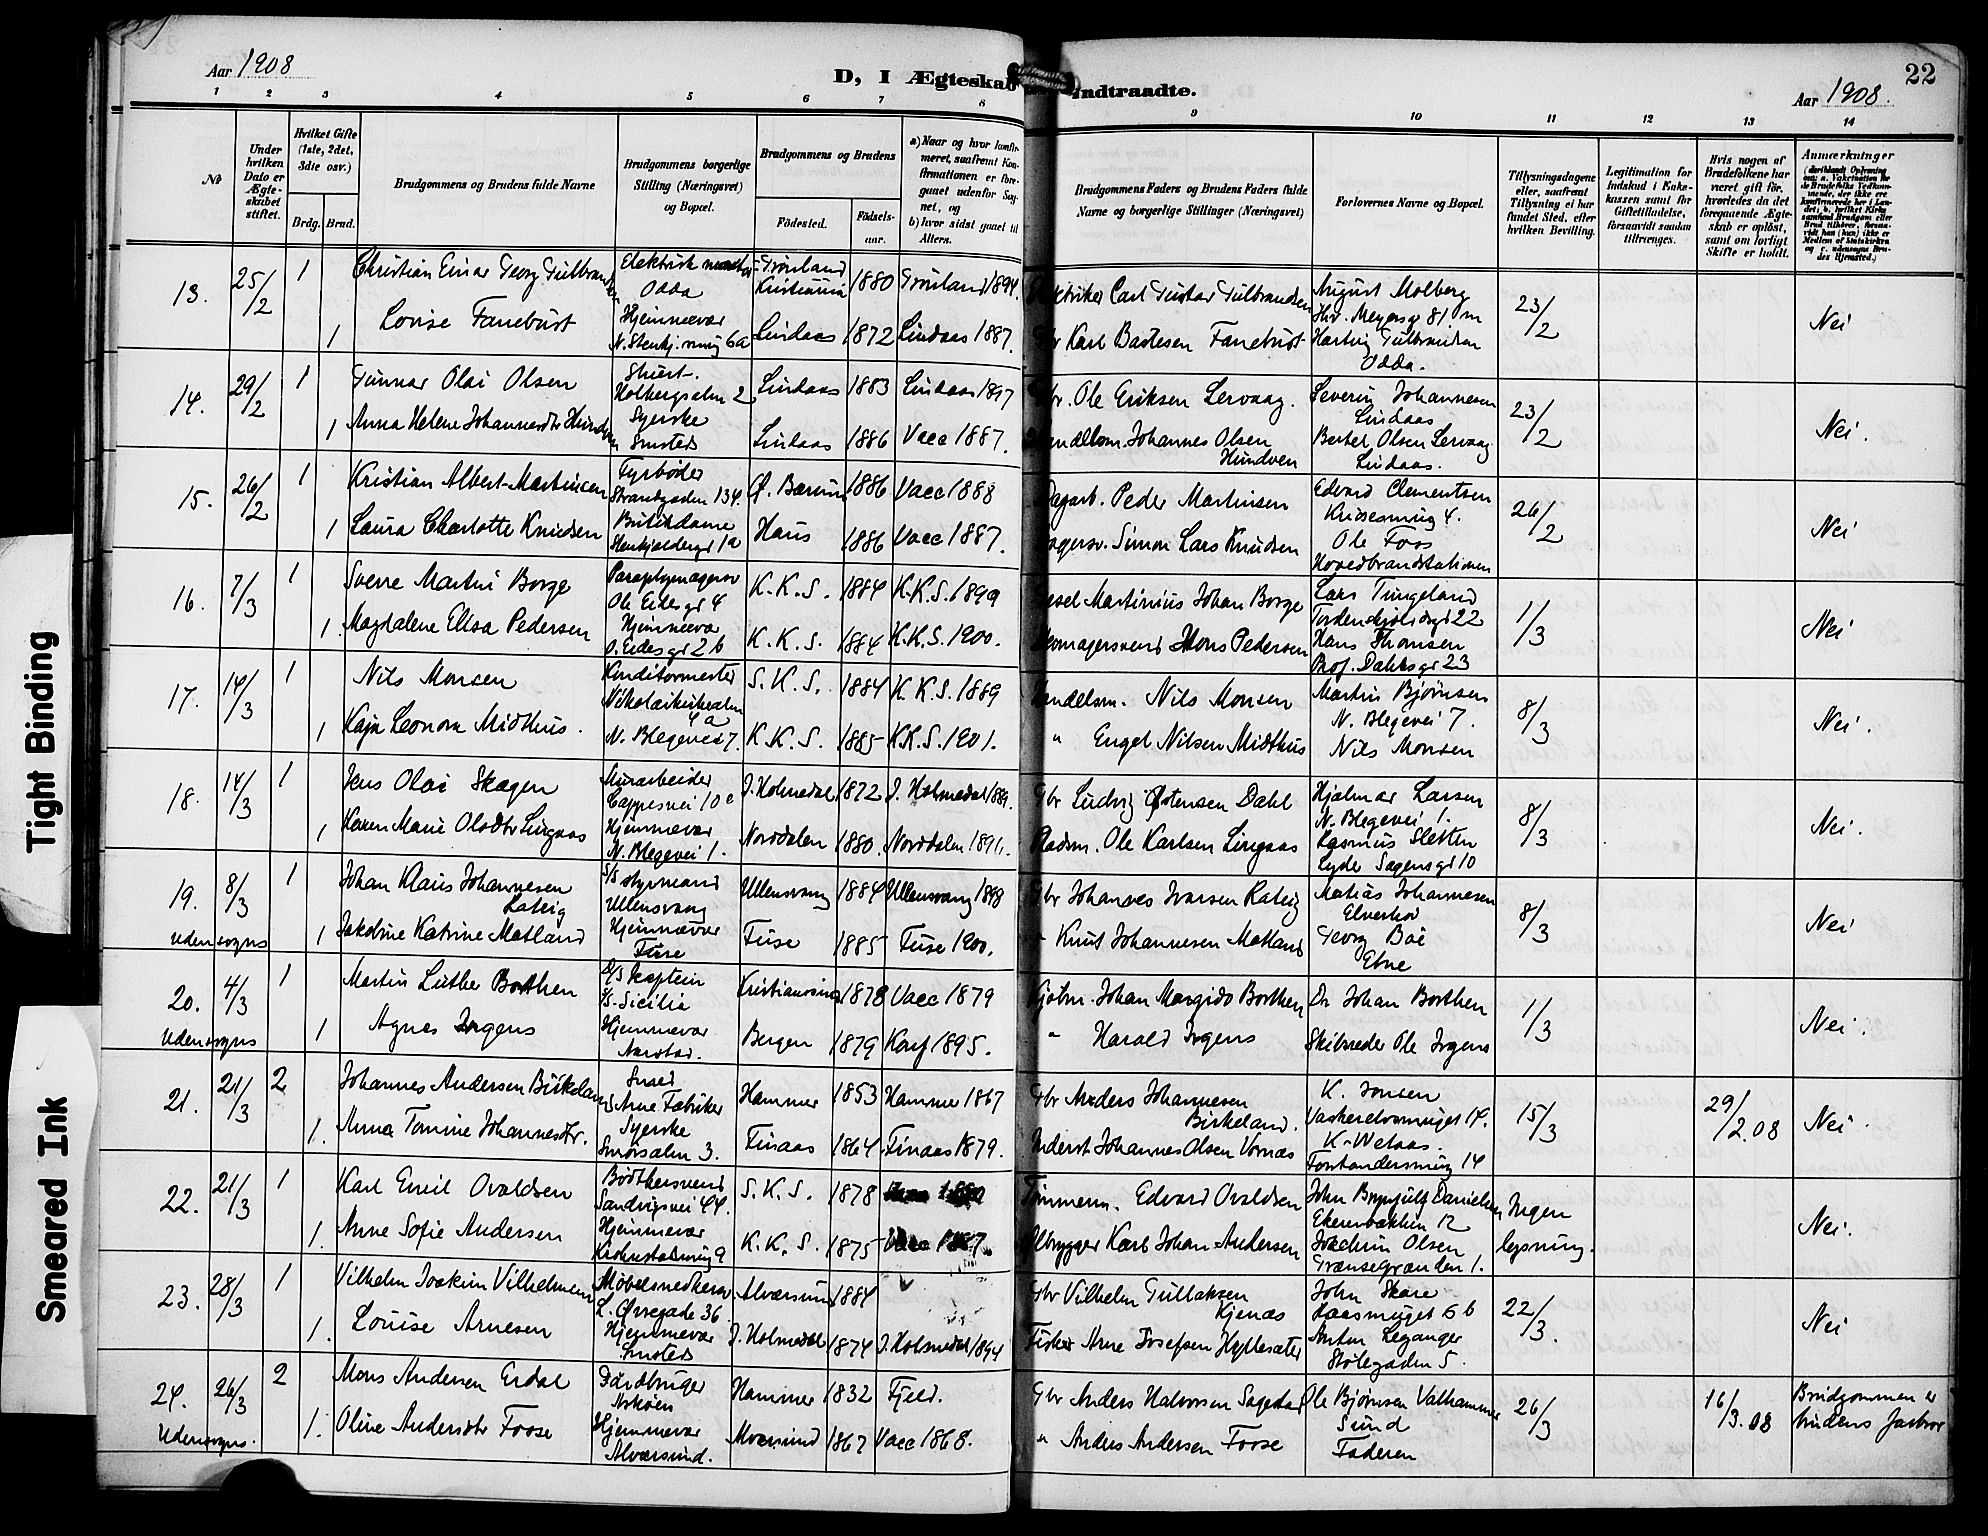 Aar 1908
D, I Ægteskab Indtraadte.
22
Aar 1908.
1 2 3 4 5 6 7 8 9 10 11 12 13 14
№
Under hvilken Dato er Ægteskabet stiftet.
Hvilket Gifte (1ste, 2det, 3die osv.)
Brdg. Brud.
Brudgommens og Brudens fulde Navne
Brudgommens borgerlige Stilling (Næringsvei) og Bopæl.
Brudgommens og Brudens
Födested. Födselsaar.
a) Naar og hvor konfirmeret, saafremt Konfirmationen er foregaaet udenfor Sognet, og
b) hvor sidst gaaet til Alters.
Brudgommens Faders og Brudens Faders fulde Navne og borgerlige Stillinger (Næringsvei)
Forlovernes Navne og Bopæl.
Tillysningsdagene eller, saafremt Tillysning ei har fundet Sted, efter hvilken Bevilling.
Legitimation for Indskud i Enkekassen samt for Giftetilladelse, forsaavidt saadan tiltrænges.
Hvis nogen af Brudefolkene har været gift för, hvorledes da det foregaaende Ægteskab er oplöst, samt om lovligt Skifte er holdt.
Anmærkninger
13. 25/2 1 Christian Einar Georg Gulbrandsen Elektrisk montør Odda Grønland Kristiania 1880 Grønland 1894. Elektriker Carl Gustav Gulbrandsen August Molberg Hv. Meyersg 81 m 23/2 Nei
1 Lovise Fanebust Hjemmevær N. Stenkj.smug 6a Lindaas 1872 Lindaas 1887. Gbr Karl Bastesen Fanebust Hartvig Gulbrandsen Odda.
14. 29/2 1 Gunnar Olai Olsen Skuest. Holbergsalm 2 Lindaas 1883 Lindaas 1897 Gbr. Ole Eriksen Lervaag. Severin Johannesen Lindaas 23/2 Nei.
1 Anna Helene Johannesdtr Hundven Syerske Smsteds Lindaas 1886 Vacc 1887. Handelsm. Johannes Olsen Hundven Berter Olsen Lervaag Lindaas.
15. 26/2 1 Kristian Albert Martinsen Fyrbøder Strandgaden 134. Ø. Bærum 1886 Vacc 1888 Dagarb. Peder Martinsen Edvard Clementsen Krissesmug 4. 26/2 Nei
1 Laura Charlotte Knudsen Butikdame Stenkjeldergd 1a Haus 1886 Vacc 1887. Simon Lars Knudsen Ole Foss Hovedbrandstationen
16. 7/3 1 Sverre Martin Borge Paraplymagersv Ole Eidesgd 4 K. K. S. 1884 K.K.S. 1899 Martinius Johan Borge Lars Tungeland Tordenskjoldsgd 22 1/3 Nei
1. Magdalene Elisa Pedersen Hjemmevær O. Eidesgd 2b K. K. S. 1884 K.K.S. 1900. Skomagersvend Hans Pedersen Hans Thomsen Prof. Dahlsgd 23
17. 14/3 1 Nils Monsen Konditormester Nikolaikirkealm 4a S. K. S. 1884 K.K.S. 1889 Handelsm. Nils Monsen Martin Bjørnsen N. Blegevei 7. 8/3 Nei.
1 Kaja Leonora Midthus. N. Blegevei 7. K.K.S. 1885 K.K.S. 1901. " Engel Nilsen Midthus Nils Monsen
18. 14/3 1 Jens Olai Skagen Murarbeider Cappesvei 10c J. Holmedal 1872 J. Holmedal 1889. Gbr Ludvig Østensen Dahl Hjalmar Larsen N. Blegevei 1. 8/3 Nei.
1 Karen Marie Olsdtr Lingaas Hjemmevær N. Blegevei 1. Norddalen 1880. Norddalen 1894. Pladsm. Ole Karlsen Lingaas Rasmus Sletten Lyder Sagensgd 10
19. 8/3 1 Johan Klaus Johannesen Rateig S/S styrmand Ullensvang Ullensvang 1884 Ullensvang 1898 Gbr Johannes Ivarsen Rateig Matias Johannesen Elverhøi 8/3 Nei
udensogns 1 Jakobine Katrine Matland Hjemmevær Fuse Fuse 1885 Fuse 1900. " Knut Johannesen Matland Georg Bøe Etne
20. 4/3 1 Martin Luther Borthen S/S kaptein S/S Sicilia Kristianssund 1878 Vacc 1879 Kjøbm. Johan Margido Borthen Dr Johan Borthen 1/3 Nei.
Udensogns 1 Agnes Irgens Hjemmevær Aarstad. Bergen 1879 Konf 1895. " Harald Irgens Skibsreder Ole Irgens
21. 21/3 2 Johannes Andersen Birkeland Smed Arne Fabriker Hammer 1853 Hammer 1867 Gbr Anders Johannesen Birkeland. K. Jonsen Vaskerelvsmuget 14. 15/3 29/2.08 Nei.
1. Anna Tomine Johannesdtr. Syerske Smørsalm 3. Finaas 1864 Finaas 1879. Inderst Johannes Olsen Vornæs K. Welaas. Forstandersmug 14
22. 21/3 1 Karl Emil Ovaldsen Bødkersvend Sandvigsvei 44. S. K. S. 1878 Tømmerm. Edvard Ovaldsen John Brynjulf Danielsen Ekrenbakken 12 Ingen lysning. Nei.
1. Anne Sofie Andersen Hjemmevær Krohnstadsmug 9 K.K.S. 1875 Vacc 1887. Ølbrygger Karl Johan Andersen Joachim Olsen Grænsegrænden 1.
23. 28/3 1 Vilhelm Joakim Vilhelmsen Møbelsnedkersv L. Øvregade 36 Alversund 1884 Gbr Vilhelm Gullaksen Kjenæs John Skare Haasmuget 6b 22/3. Nei
1. Louise Arnesen Hjemmevær Smsteds J. Holmedal 1874 J. Holmedal 1894 Fisker Arne Josefsen Hyllesæter Anton Leganger Stølegaden 5.
24. 26/3 2 Mons Andersen Erdal Gardbruger Askøen Hammer 1832 Fjeld. Gbr Anders Halvorsen Sagstad Ole Bjørnsen Valhammer Sund 26/3 16/3.08 Brudgommen er brudens farbror
Udensogns. 1. Oline Andersdtr Fosse Hjemmevær Alversund. Alversund 1867 Vacc 1868. " Anders Andersen Fosse Faderen
Tight Binding
Smeared Ink